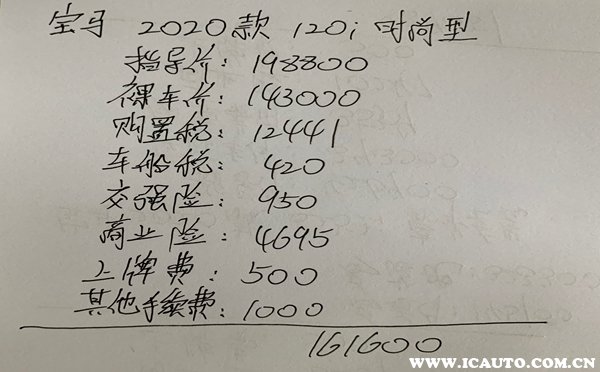 宝马 2020款 120i 时尚型
指导价: 198800
裸车价: 143000
购置税: 12441
车船税: 420
交强险: 950
商业险: 4695
上牌费: 500
其他手续费: 1000
161600
爱卡汽车
WWW.ICAUTO.COM.CN